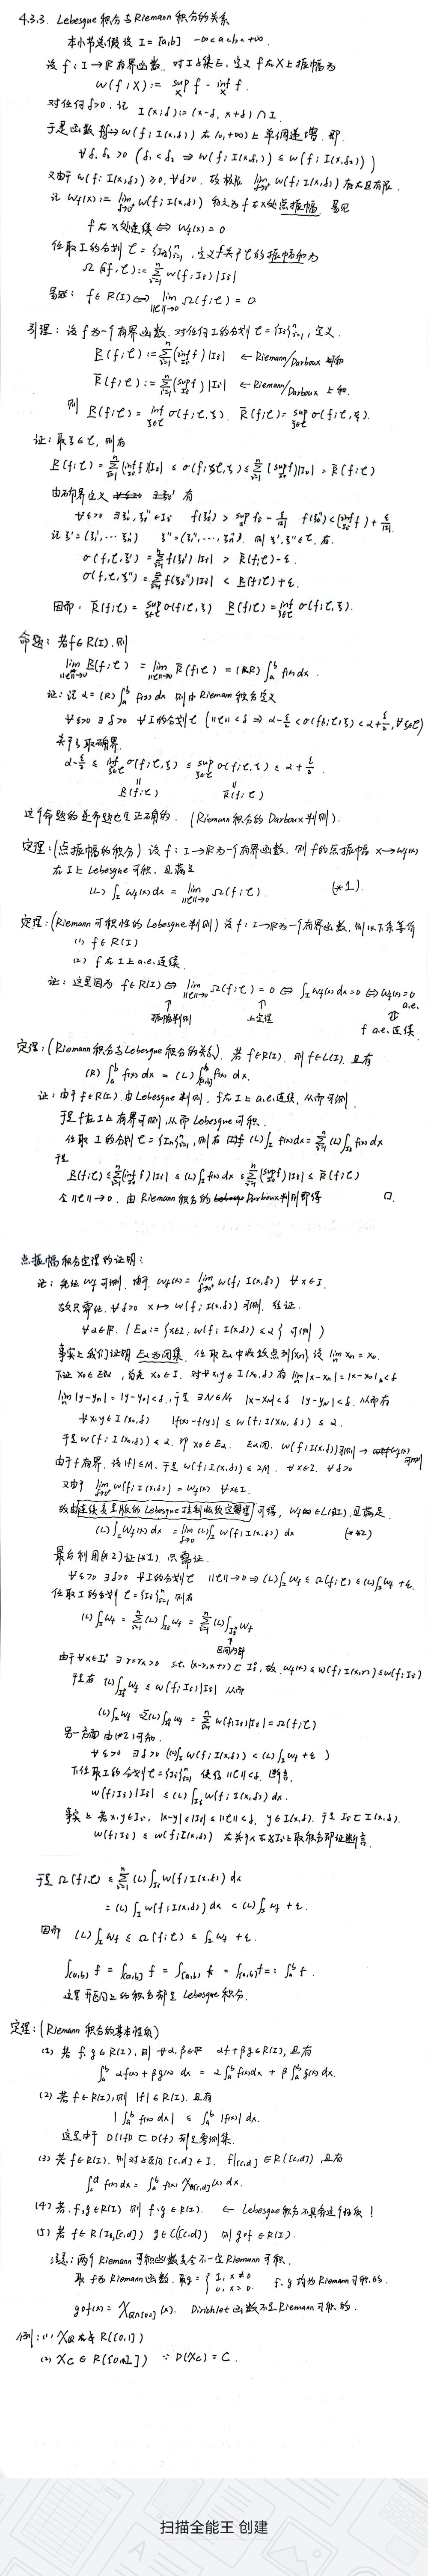 4.3.3. Lebesgue 积分与Riemann 积分的关系
本小节总假设 I = [a,b] -∞<a<b<+∞.
设 f: I→ℝ有界函数. 对I子集X, 定义 f在X上振幅为
w(f;X) := sup_X f - inf_X f.
对任何δ>0. 记 I(x,δ) := (x-δ, x+δ) ∩ I.
于是函数 δ↦w(f; I(x,δ)) 在 (0,+∞)上 单调递增, 即
∀δ₁,δ₂>0 (δ₁<δ₂ ⇒ w(f; I(x,δ₁)) ≤ w(f; I(x,δ₂)))
又由于 w(f; I(x,δ)) ≥0, ∀δ>0, 故极限 lim_{δ→0⁺} w(f; I(x,δ)) 存在且有限.
记 w_f(x) := lim_{δ→0⁺} w(f; I(x,δ)) 称之为 f 在x处点振幅. 易见
f 在 x处连续 ⇔ w_f(x) = 0
任取 I的分划 τ = {I_i}_{i=1}^n, 定义f关于τ的振幅和为
Ω(f;τ) := Σ_{i=1}^n w(f; I_i)|I_i|
易验: f∈R(I) ⇔ lim_{||τ||→0} Ω(f;τ) = 0
引理: 设 f为一个有界函数. 对任何I的分划 τ={I_i}_{i=1}^n, 定义.
R̲(f;τ) := Σ_{i=1}^n (inf_{I_i} f)|I_i| ← Riemann/Darboux 下和
R̄(f;τ) := Σ_{i=1}^n (sup_{I_i} f)|I_i| ← Riemann/Darboux 上和.
则 R̲(f;τ) = inf_{ξ∈τ} σ(f;τ,ξ). R̄(f;τ) = sup_{ξ∈τ} σ(f;τ,ξ).
证: 取ξ∈τ, 则有
R̲(f;τ) = Σ_{i=1}^n (inf_{I_i} f)|I_i| ≤ σ(f;τ,ξ) ≤ Σ_{i=1}^n (sup_{I_i} f)|I_i| = R̄(f;τ)
由确界定义 有
∀ε>0 ∃ξ_i', ξ_i''∈I_i f(ξ_i') > sup_{I_i} f - ε/|I| f(ξ_i'') < (inf_{I_i} f) + ε/|I|.
记 ξ' = (ξ₁', ⋯ ξ_n') ξ'' = (ξ₁'', ⋯, ξ_n''). 则 ξ', ξ''∈τ, 有.
σ(f,τ,ξ') = Σ_{i=1}^n f(ξ_i')|I_i| > R̄(f;τ) - ε.
σ(f,τ,ξ'') = Σ_{i=1}^n f(ξ_i'')|I_i| < R̲(f;τ) + ε.
因而, R̄(f;τ) = sup_{ξ∈τ} σ(f;τ,ξ) R̲(f;τ) = inf_{ξ∈τ} σ(f;τ,ξ).
命题: 若f∈R(I). 则
lim_{||τ||→0} R̲(f;τ) = lim_{||τ||→0} R̄(f;τ) = (R) ∫_a^b f(x) dx.
证: 记 α = (R) ∫_a^b f(x) dx 则由Riemann 积分定义
∀ε>0 ∃δ>0 ∀I的分划τ (||τ||<δ ⇒ α-ε/2 < σ(f;τ,ξ) < α+ε/2, ∀ξ∈τ)
关于ξ取确界.
α-ε/2 ≤ inf_{ξ∈τ} σ(f;τ,ξ) ≤ sup_{ξ∈τ} σ(f;τ,ξ) ≤ α+ε/2.
R̲(f;τ) R̄(f;τ)
这个命题的逆命题也是正确的. (Riemann 积分的 Darboux 判别).
定理: (点振幅的积分) 设 f: I→ℝ为一个有界函数, 则 f的点振幅 x→w_f(x)
在 I上 Lebesgue 可积, 且满足
(L) ∫_I w_f(x) dx = lim_{||τ||→0} Ω(f;τ). (*1).
定理: (Riemann 可积性的 Lebesgue 判别) 设 f: I→ℝ为一个有界函数, 则以下条等价
(1) f∈R(I)
(2) f 在I上 a.e. 连续.
证: 这是因为 f∈R(I) ⇔ lim_{||τ||→0} Ω(f;τ) = 0 ⇔ ∫_I w_f(x) dx = 0 ⇔ w_f(x) = 0 a.e.
振幅判别 上定理 f a.e. 连续.
定理: (Riemann 积分与Lebesgue 积分的关系). 若 f∈R(I). 则 f∈L(I). 且有
(R) ∫_a^b f(x) dx = (L) ∫_{[a,b]} f(x) dx.
证: 由于 f∈R(I). 由 Lebesgue 判别, f在 I上 a.e.连续, 从而可测.
于是 f在I上有界可测, 从而 Lebesgue 可积.
任取 I的分划τ={I_i}_{i=1}^n, 则有 (L) ∫_I f(x) dx = Σ_{i=1}^n (L) ∫_{I_i} f(x) dx
于是
R̲(f;τ) ≤ Σ_{i=1}^n (inf_{I_i} f)|I_i| ≤ (L) ∫_I f(x) dx ≤ Σ_{i=1}^n (sup_{I_i} f)|I_i| ≤ R̄(f;τ)
令||τ||→0. 由 Riemann 积分的 Darboux 判别即得 □.
点振幅积分定理的证明:
证: 先证 w_f 可测. 由于 w_f(x) = lim_{δ→0⁺} w(f; I(x,δ)) ∀x∈I.
故只需证. ∀δ>0 x↦w(f; I(x,δ)) 可测. 往证.
∀α∈ℝ. (E_α := {x∈I: w(f; I(x,δ)) ≤ α} 可测)
事实上我们证明 E_α为闭集. 任取E_α中收敛点列{x_n} 设 lim x_n = x₀.
下证 x₀∈E_α, 首先 x₀∈I. 对∀x,y∈I(x₀,δ) 有 lim|x-x_n| = |x-x₀|<δ
lim|y-y_n| = |y-y₀|<δ, 于是 ∃N∈ℕ |x-x_N|<δ |y-y_N|<δ. 从而有
∀x,y∈I(x₀,δ) |f(x)-f(y)| ≤ w(f; I(x_N,δ)) ≤ α.
于是 w(f; I(x₀,δ)) ≤ α. 即 x₀∈E_α. E_α闭. w(f; I(x,δ))可测 → w_f(x) 可测
由于 f有界. 设|f|≤M, 于是 w(f; I(x,δ)) ≤ 2M, ∀x∈I. ∀δ>0
又由于 lim_{δ→0⁺} w(f; I(x,δ)) = w_f(x) ∀x∈I.
故由连续参量版的Lebesgue控制收敛定理可得, w_f∈L(I), 且满足.
(L) ∫_I w_f(x) dx = lim_{δ→0} (L) ∫_I w(f; I(x,δ)) dx (*2)
最后利用(*2)证(*1). 只需证.
∀ε>0 ∃δ>0 ∀I的分划τ ||τ||→0 ⇒ (L)∫_I w_f ≤ Ω(f;τ) ≤ (L)∫_I w_f + ε.
任取 I的分划 τ={I_i}_{i=1}^n 则有
(L) ∫_I w_f = Σ_{i=1}^n (L) ∫_{I_i} w_f = Σ_{i=1}^n (L) ∫_{I_i°} w_f
区间内部
由于 ∀x∈I_i° ∃r=r_x>0 s.t. (x-r,x+r) ⊂ I_i°, 故 w_f(x) ≤ w(f; I(x,r)) ≤ w(f; I_i)
于是有 (L) ∫_{I_i°} w_f ≤ w(f; I_i)|I_i| 从而
(L) ∫_I w_f = Σ(L) ∫_{I_i°} w_f = Σ_{i=1}^n w(f;I_i)|I_i| = Ω(f;τ)
另一方面 由(*2)可知.
∀ε>0 ∃δ>0 (L)∫_I w(f; I(x,δ)) < (L)∫_I w_f + ε)
下任取I的分划τ={I_i}_{i=1}^n 使得||τ||<δ. 断言.
w(f;I_i)|I_i| ≤ (L) ∫_{I_i} w(f; I(x,δ)) dx.
事实上 若x,y∈I_i, |x-y| ≤ |I_i| ≤ ||τ|| <δ, y∈I(x,δ). 于是 I_i⊂I(x,δ).
w(f; I_i) ≤ w(f; I(x,δ)) 在关于x在I_i上取积分即证断言.
于是 Ω(f;τ) ≤ Σ_{i=1}^n (L) ∫_{I_i} w(f, I(x,δ)) dx
= (L) ∫_I w(f, I(x,δ)) dx < (L) ∫_I w_f + ε.
因而 (L) ∫_I w_f ≤ Ω(f;τ) ≤ ∫_I w_f + ε.
∫_{(a,b)} f = ∫_{(a,b]} f = ∫_{[a,b)} f = ∫_{[a,b]} f =: ∫_a^b f.
这里 开区间上的积分都是 Lebesgue 积分.
定理: (Riemann 积分的基本性质)
(1) 若 f,g∈R(I), 则 ∀α,β∈ℝ αf+βg∈R(I), 且有
∫_a^b αf(x)+βg(x) dx = α∫_a^b f(x)dx + β∫_a^b g(x) dx.
(2) 若 f∈R(I), 则 |f|∈R(I). 且有
|∫_a^b f(x) dx| ≤ ∫_a^b |f(x)| dx.
这是由于 D(|f|) ⊂ D(f) 都是零测集.
(3) 若 f∈R(I). 则 对子区间 [c,d]⊂I. f|_{[c,d]} ∈R([c,d]), 且有
∫_c^d f(x) dx = ∫_a^b f(x) χ_{[c,d]}(x) dx.
(4) 若 f,g∈R(I) 则 f·g∈R(I). ← Lebesgue积分不具有这个性质!
(5) 若 f∈R(I;[c,d]) g∈C([c,d]) 则 g∘f∈R(I).
注意: 两个Riemann可积函数复合不一定Riemann可积.
取 f为Riemann函数. 取g = { 1, x≠0
0, x=0. f, g 均为Riemann可积的.
g∘f(x) = χ_{ℚ∩[0,1]}(x). Dirichlet 函数不是Riemann可积的.
例: (1) χ_ℚ ∉ R([0,1])
(2) χ_C ∈ R([0,1]) ∵ D(χ_C) = C.
扫描全能王 创建